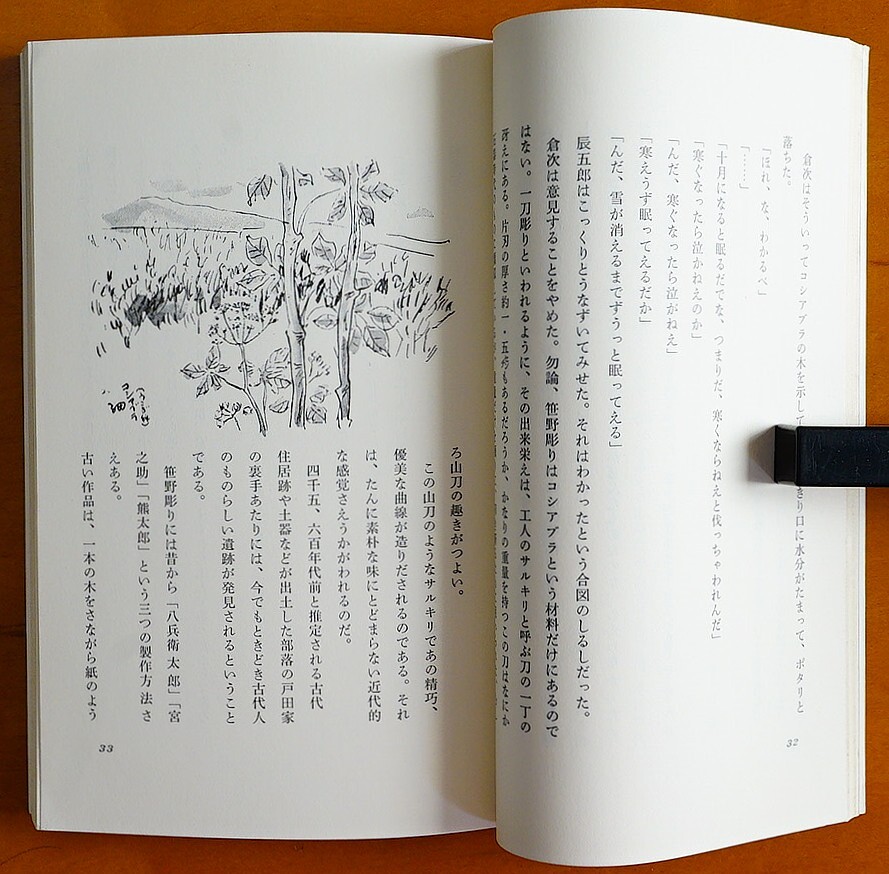 倉次はそういってコシアブラの木を示して
きり口に水分がたまって、ポタリと
落ちた。
「ほれ、な、わかるべ」
「……」
「十月になると眠るだでな、つまりだ、寒くならねえと伐っちゃわれんだ」
「寒ぐなったら泣かねえのか」
「んだ、寒ぐなったら泣がねえ」
「寒えうす眠ってえるだか」
「んだ、雪が消えるまでずうっと眠ってえる」
辰五郎はこっくりとうなずいてみせた。それはわかったという合図のしるしだった。
倉次は意見することをやめた。勿論、笹野彫りはコシアブラという材料だけにあるので
はない。一刀彫りといわれるように、その出来栄えは、工人のサルキリと呼ぶ刀の一丁の
冴えにある。片刃の厚さ約一・五㌢もあるだろうか、かなりの重量を持つこの刀はなにか
32
ろ山刀の趣きがつよい。
この山刀のようなサルキリであの精巧、
優美な曲線が造りだされるのである。それ
は、たんに素朴な味にとどまらない近代的
な感覚さえうかがわれるのだ。
四千五、六百年代前と推定される古代
住居跡や土器などが出土した部落の戸田家
の裏手あたりには、今でもときどき古代人
のものらしい遺跡が発見されるということ
である。
笹野彫りには昔から「八兵衛太郎」「宮
之助」「熊太郎」という三つの製作方法さ
えある。
古い作品は、一本の木をさながら紙のよう
33